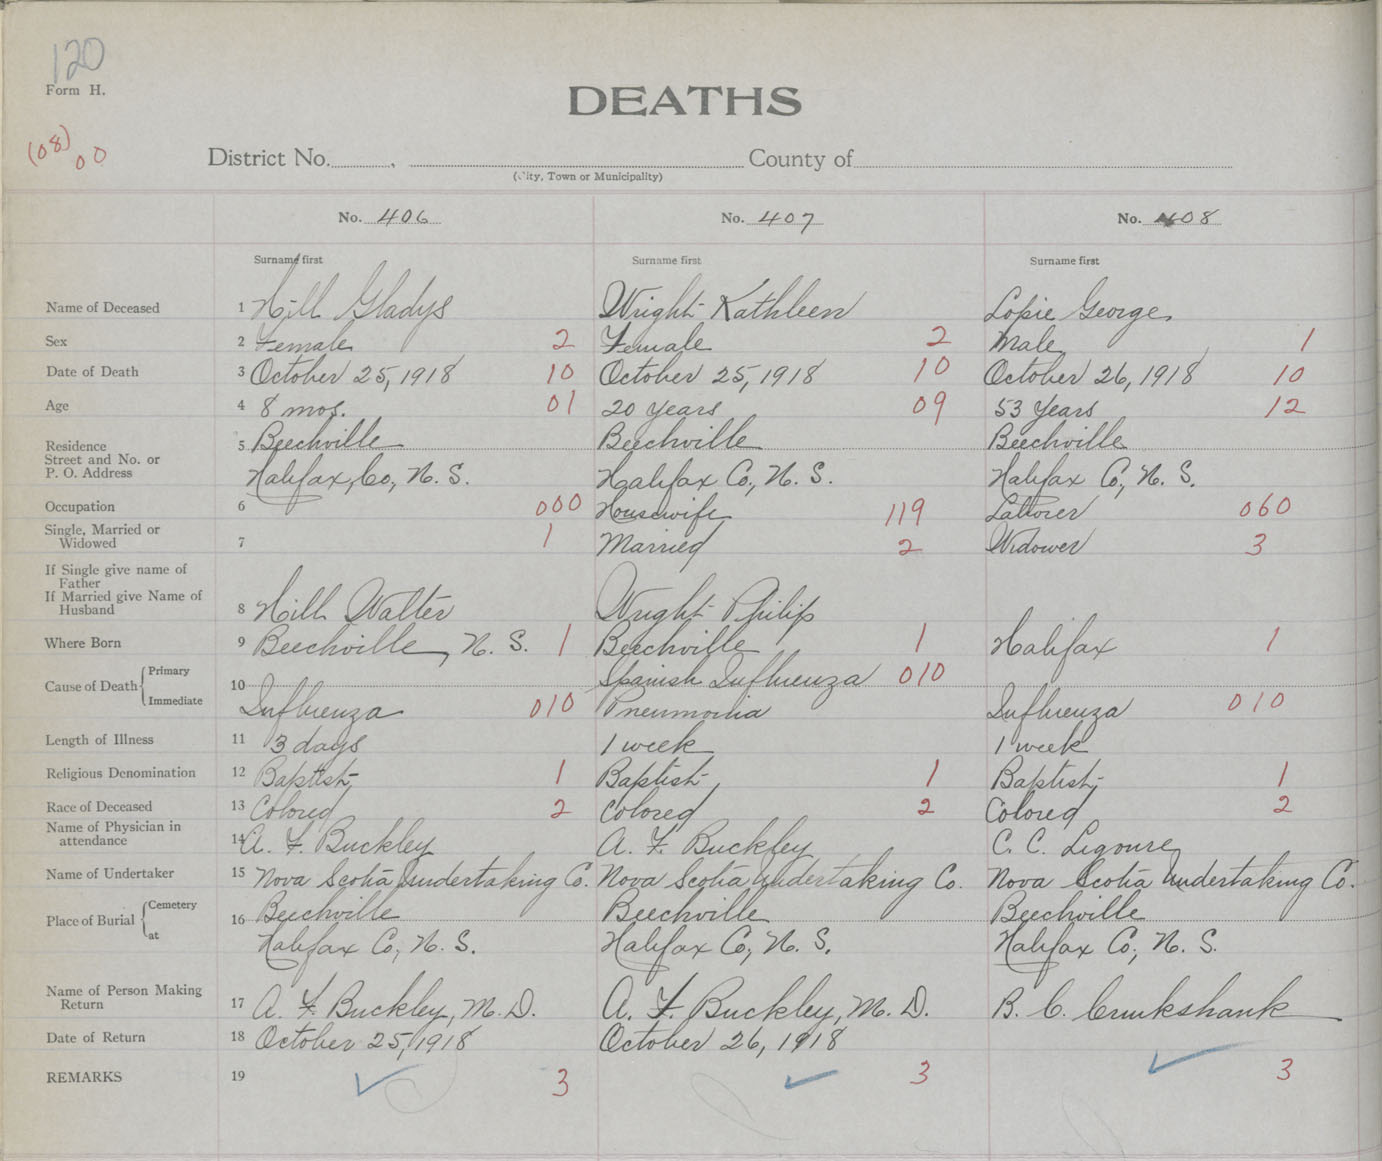 120
Form H.
DEATHS
(08) 00
District No. , County of
(City, Town or Municipality)
No. 406 No. 407 No. 408
Surname first Surname first Surname first
Name of Deceased 1 Hill Gladys Wright Kathleen Lopie George
Sex 2 Female 2 Female 2 Male 1
Date of Death 3 October 25, 1918 10 October 25, 1918 10 October 26, 1918 10
Age 4 8 mos. 01 20 years 09 53 Years 12
Residence 5 Beechville Beechville Beechville
Street and No. or
P. O. Address Halifax, Co, N. S. Halifax Co., N. S. Halifax Co., N. S.
Occupation 6 000 Housewife 119 Laborer 060
Single, Married or
Widowed 7 1 Married 2 Widower 3
If Single give name of
Father
If Married give Name of
Husband 8 Hill Walter Wright Philip
Where Born 9 Beechville, N. S. 1 Beechville 1 Halifax 1
Cause of Death { Primary 10 Spanish Influenza 010
Immediate Influenza 010 Pneumonia Influenza 010
Length of Illness 11 3 days 1 week 1 week
Religious Denomination 12 Baptist 1 Baptist 1 Baptist 1
Race of Deceased 13 Colored 2 Colored 2 Colored 2
Name of Physician in
attendance 14 A. F. Buckley A. F. Buckley C. C. Ligoure
Name of Undertaker 15 Nova Scotia Undertaking Co. Nova Scotia Undertaking Co. Nova Scotia Undertaking Co.
Place of Burial { Cemetery 16 Beechville Beechville Beechville
at Halifax Co., N. S. Halifax Co., N. S. Halifax Co., N. S.
Name of Person Making
Return 17 A. F. Buckley, M. D. A. F. Buckley, M. D. B. C. Cruikshank
Date of Return 18 October 25, 1918 October 26, 1918
REMARKS 19 3 3 3